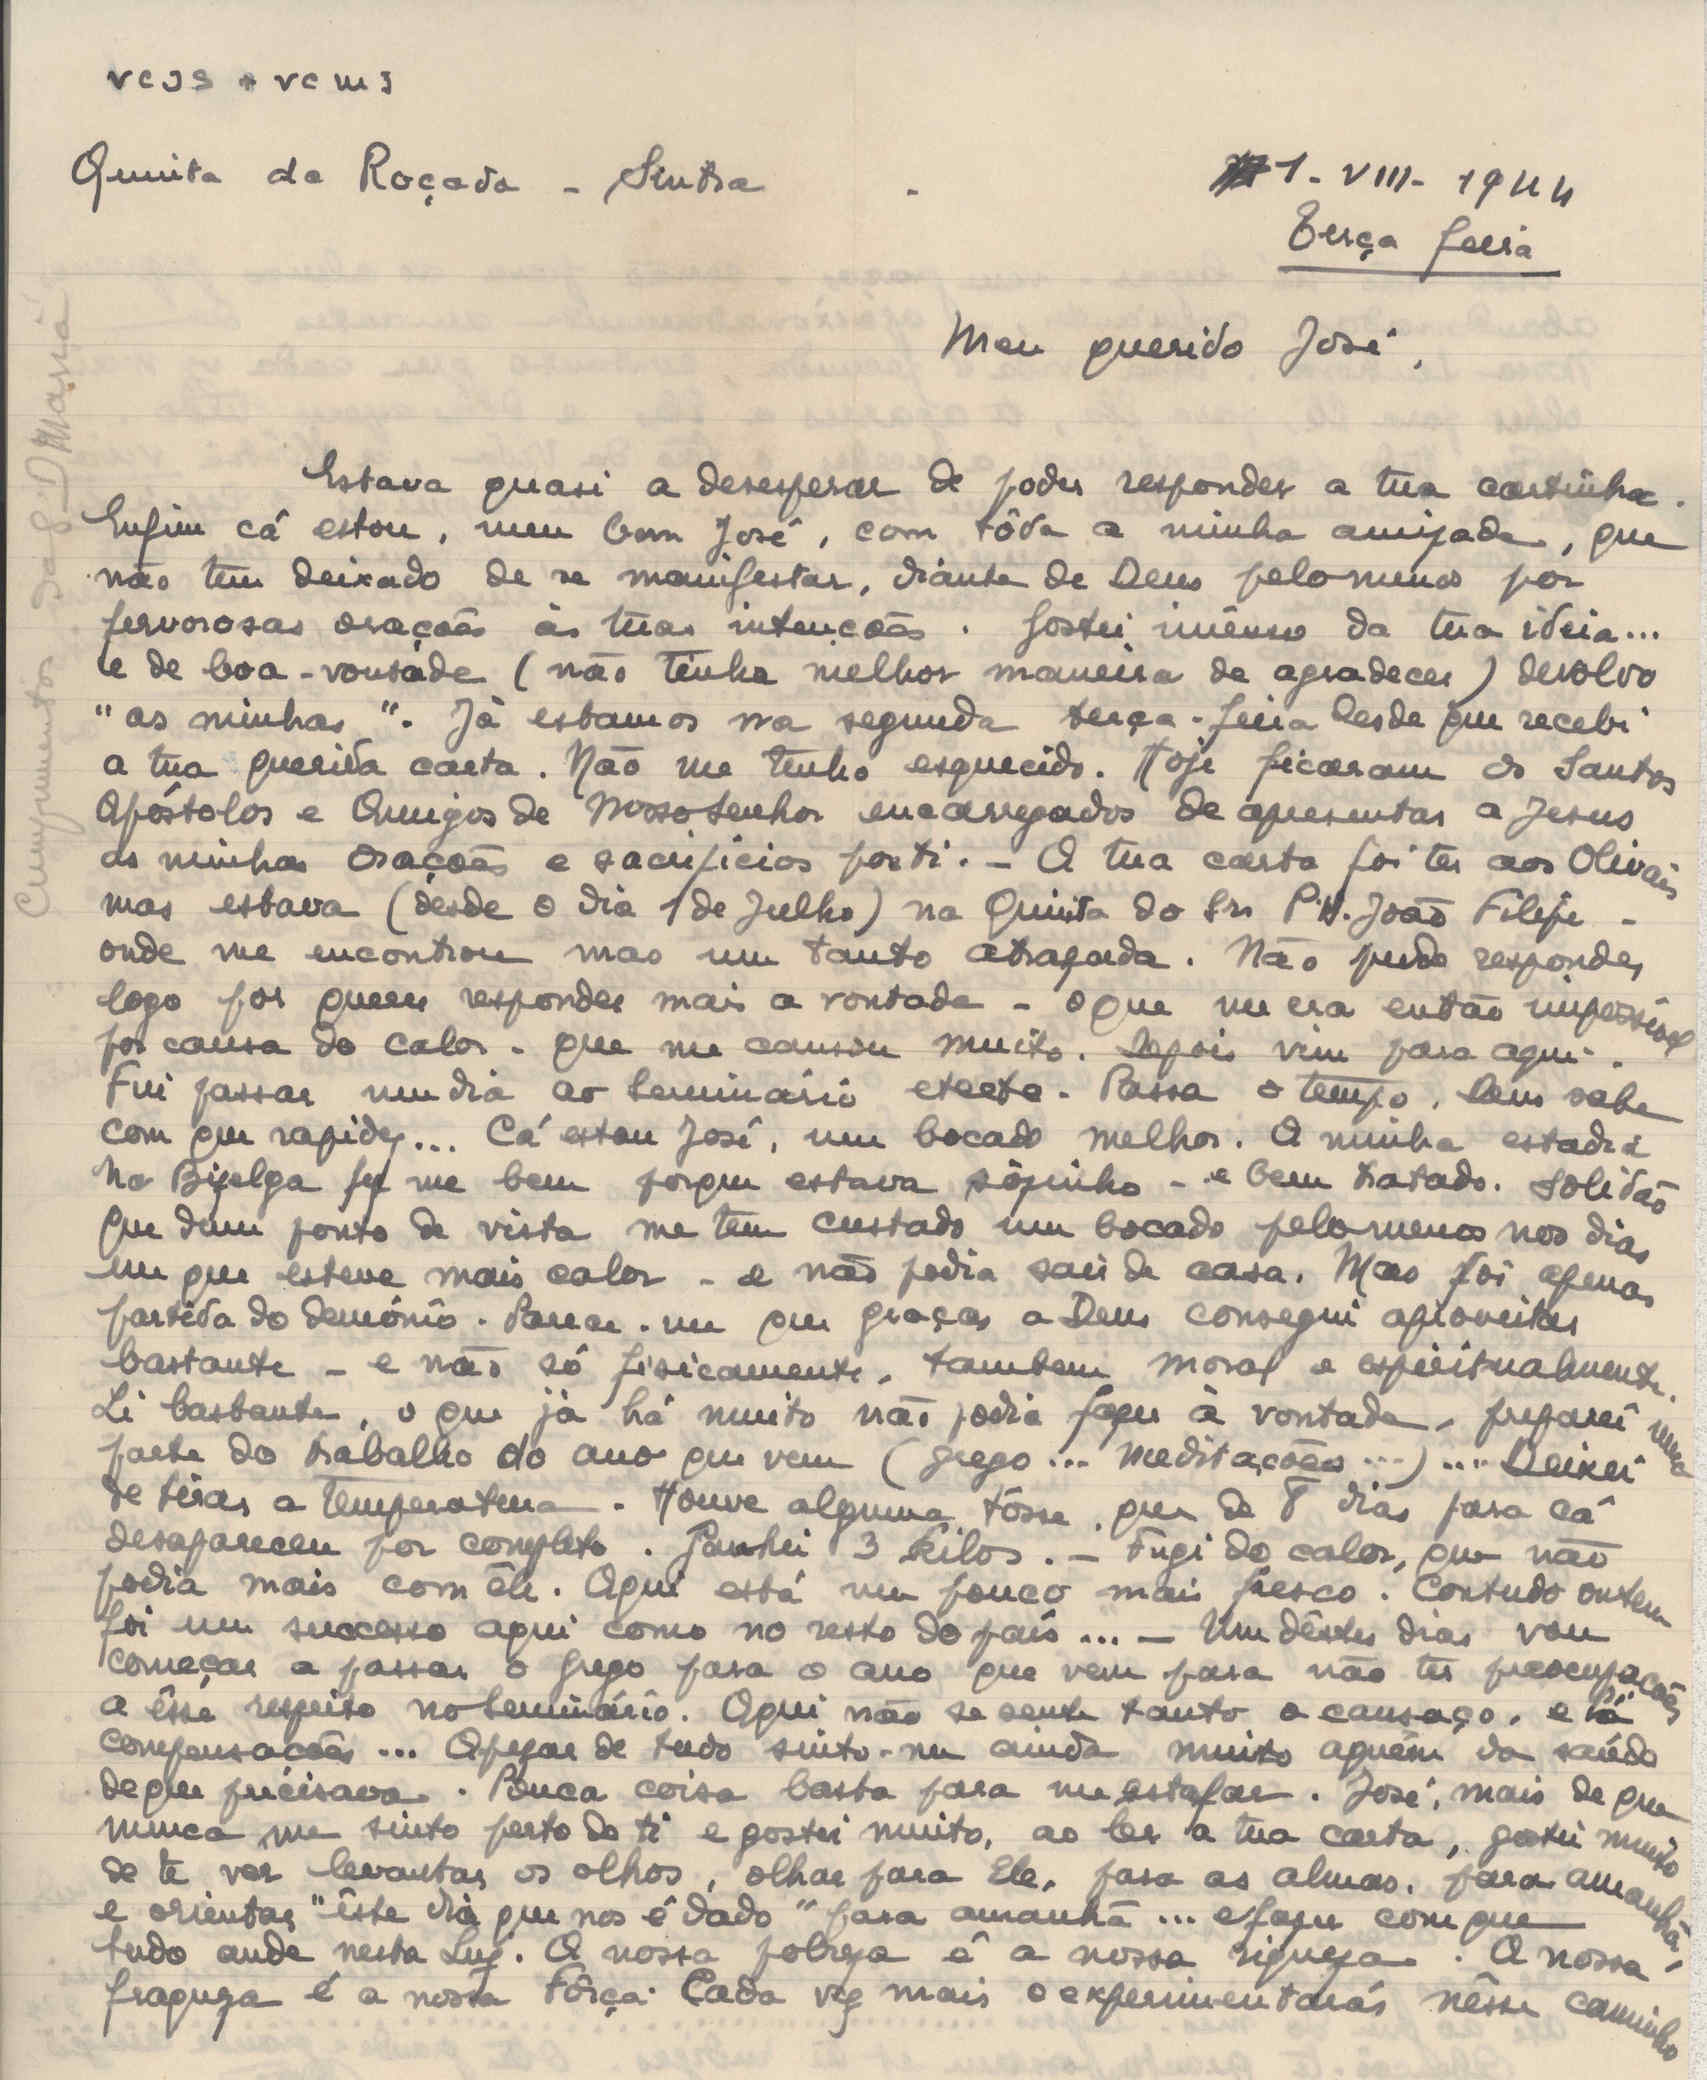 VCJS + VCMJ
Quinta da Roçada - Sintra
1-VIII-1944
Terça feira
Meu querido José,
Estava quasi a desesperar de poder responder a tua cartinha.
Enfim cá estou, meu bom José, com tôda a minha amizade, que
não tem deixado de se manifestar, diante de Deus pelo menos por
fervorosas orações às tuas intenções. Gostei imenso da tua ideia...
e de boa-vontade (não tenho melhor maneira de agradecer) devolvo
"as minhas". Já estamos na segunda terça-feira desde que recebi
a tua querida carta. Não me tenho esquecido. Hoje ficaram os Santos
Apóstolos e Amigos de Nosso Senhor encarregados de apresentar a Jesus
as minhas orações e sacrifícios por ti. - A tua carta foi ter aos Olivais
mas estava (desde o dia 1 de Julho) na Quinta do Sr. P. João Filipe -
onde me encontrou mas um tanto atrazada. Não pude responder
logo por querer responder mais a vontade - o que me era então impossível
por causa do calor - que me cansou muito. Depois vim para aqui.
Fui passar um dia ao Seminário etc etc. Passa o tempo, Deus sabe
com que rapidez... Cá estou José, um bocado melhor. A minha estadia
na Bezelga fez me bem porque estava sòzinho - e bem tratado. Solidão
que dum ponto de vista me tem custado um bocado pelo menos nos dias
em que esteve mais calor - e não podia sair de casa. Mas foi apenas
partida do demónio. Parece-me que graças a Deus consegui aproveitar
bastante - e não só fisicamente, tambem moral e espiritualmente.
Li bastante, o que já há muito não podia fazer à vontade, preparei uma
parte do trabalho do ano que vem (grego... meditações...)... Deixei
de tirar a temperatura. Houve alguma tôsse, que de 8 dias para cá
desapareceu por completo. Ganhei 3 kilos. - Fugi do calor, que não
podia mais com êle. Aqui está um pouco mais fresco. Contudo ontem
foi um successo aqui como no resto do país... - Um dêstes dias vou
começar a passar o grego para o ano que vem para não ter preocupações
a êsse respeito no Seminário. Aqui não se sente tanto o cansaço, e há
compensações... Apezar de tudo sinto-me ainda muito aquém da saúde
de que precisava. Pouca coisa basta para me estafar. José, mais de que
nunca me sinto perto de ti e gostei muito, ao ler a tua carta, gostei muito
de te ver levantar os olhos, olhar para Ele, para as almas, para amanhã,
e orientar "êste dia que nos é dado" para amanhã... e fazer com que
tudo ande nesta Luz. A nossa pobreza é a nossa riqueza. A nossa
fraqueza é a nossa Fôrça. Cada vez mais o experimentarás nêsse caminho
Cumprimentos da S. D. Maria